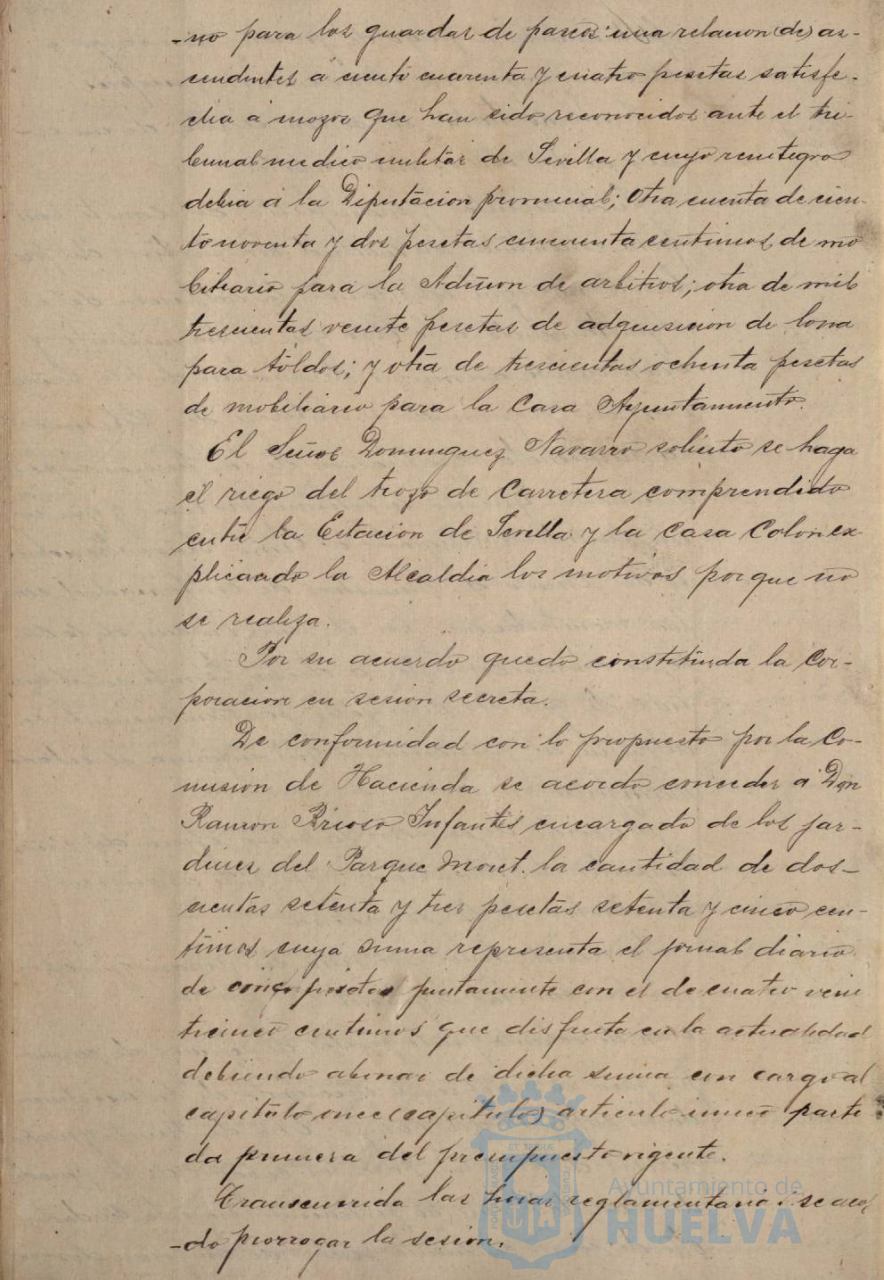 -no para los guardas de paseos una relacion (de) as-
cendentes á ciento cuarenta y cuatro pesetas satisfe-
cha á mozos que han sido reconocidos ante el tri-
bunal medico militar de Sevilla y cuyo reintegro
debia á la Diputacion provincial; otra cuenta de cien-
to noventa y dos pesetas cincuenta centimos de mo
biliario para la Admon de arbitrios; otra de mil
trescientas veinte pesetas de adquisicion de lona
para toldos; y otra de trescientas ochenta pesetas
de mobiliario para la Casa Ayuntamiento.
El Señor Dominguez Navarro solicito se haga
el riego del trozo de Carretera comprendido
entre la Estacion de Sevilla y la Casa Colon ex-
plicando la Alcaldia los motivos porque no
se realiza.
Por su acuerdo quedo constituida la Cor-
poracion en sesion secreta.
De conformidad con lo propuesto por la Co-
mision de Hacienda se acordo conceder á Don
Ramon Infantes encargado de los jar-
dines del Parque Moret. la cantidad de dos-
cientas setenta y tres pesetas setenta y cinco cen-
timos cuya suma representa el jornal diario
de cinco pesetas juntamente con el de cuatro vein
ticinco centimos que disfruta en la actualidad
debiendo abonar de dicha suma con cargo al
capitulo once (capitulo) articulo unico parti
da primera del presupuesto vigente.
Transcurrida las horas reglamentarias se acor
-do prorrogar la sesion.
Ayuntamiento de
HUELVA